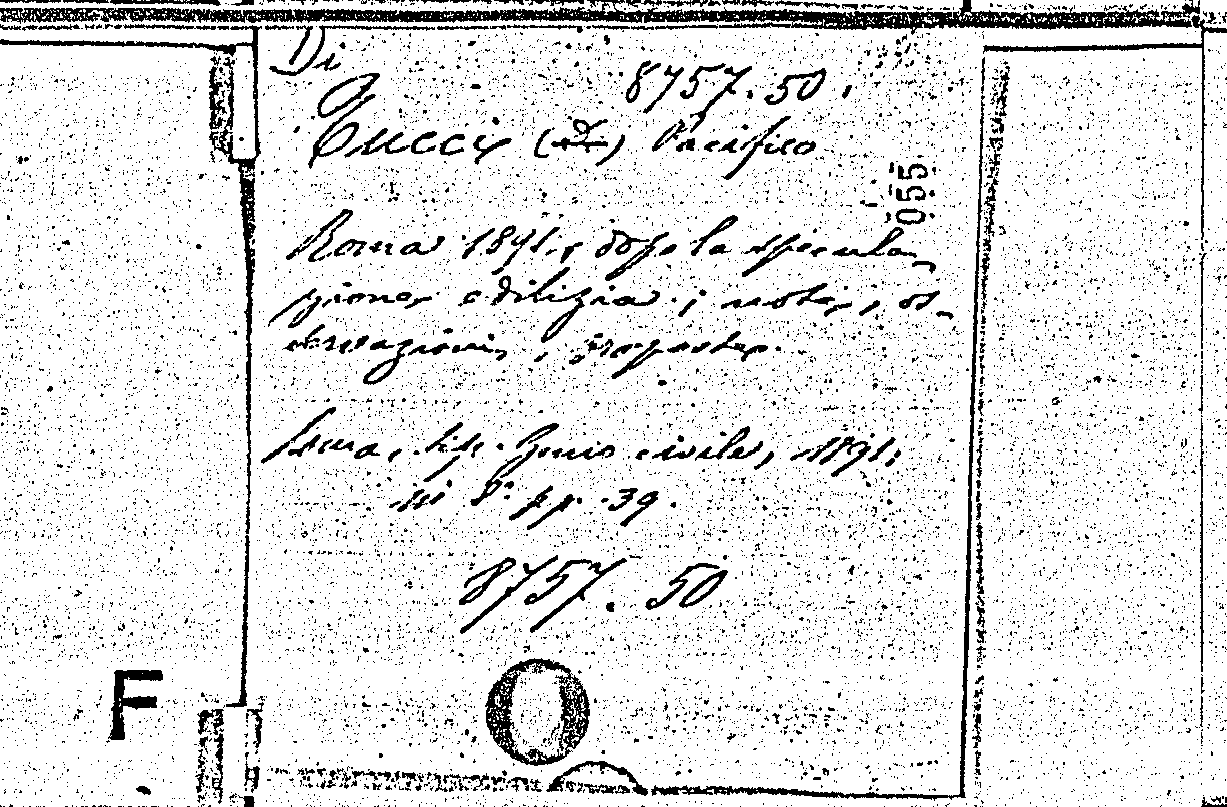 Di
8757.50.
Tucci (di) Pacifico
055
Roma 1891, dopo la specula-
zione edilizia; note, os-
servazioni, proposte.
Roma, tip. Genio civile, 1891;
in 8° pp. 39.
8757.50
F